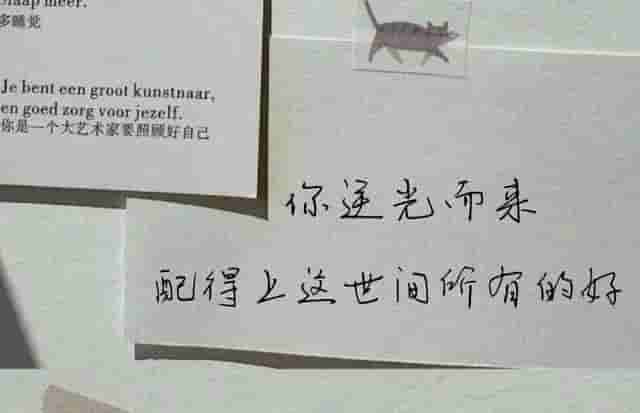 slaap meer.
多睡觉
Je bent een groot kunstnaar,
en goed zorg voor jezelf.
你是一个大艺术家要照顾好自己
你逆光而来
配得上这世间所有的好